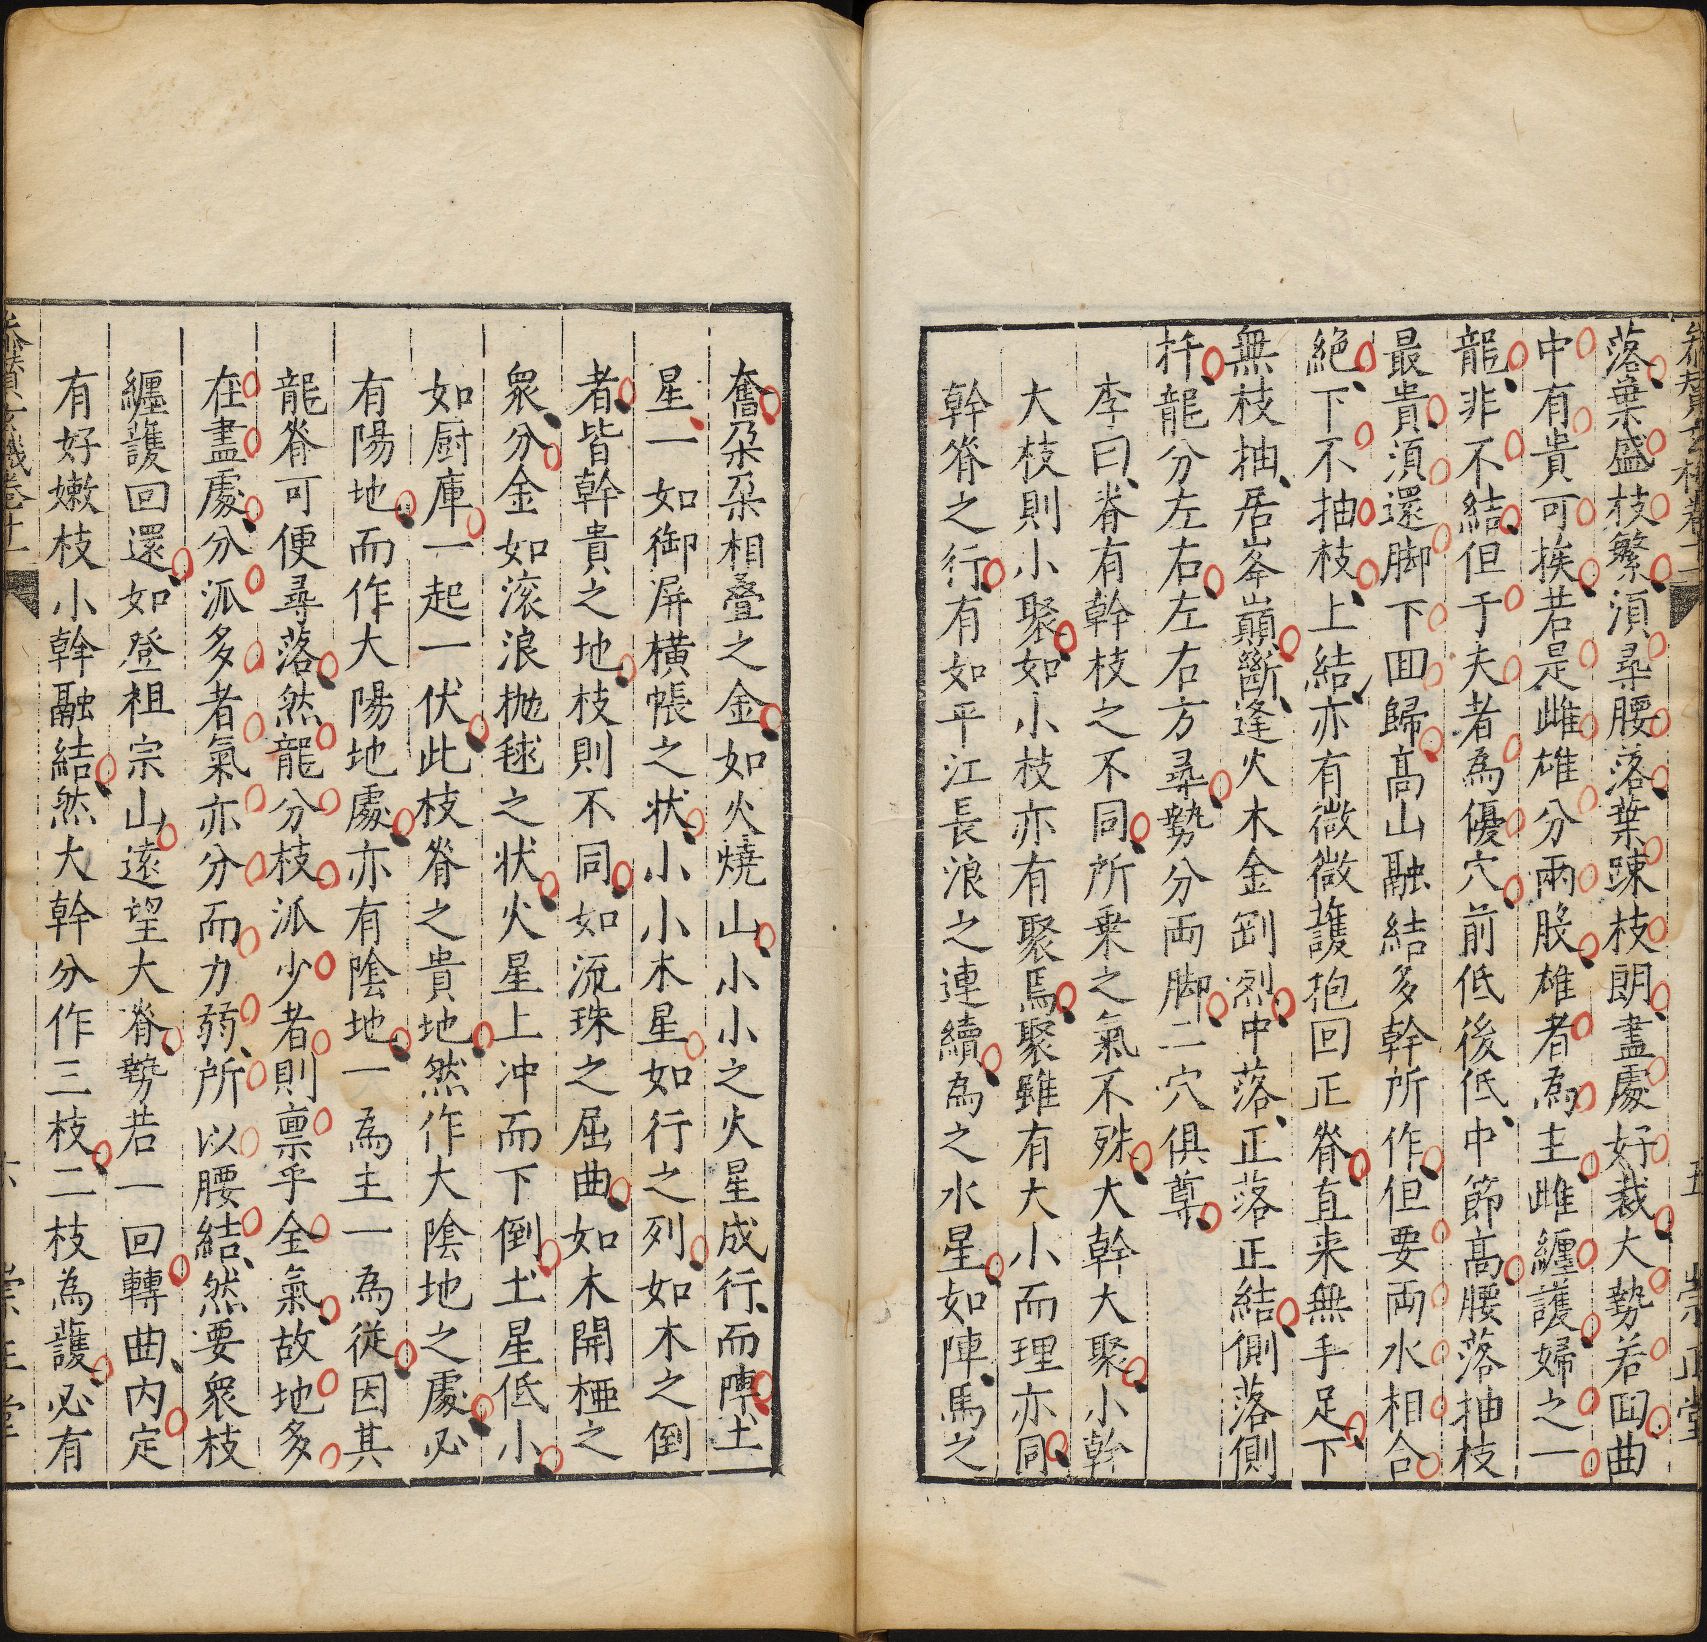 落葉盛枝繁須尋腰落葉踈枝朗盡處好裁大勢若囬曲
中有貴可挨若是雌雄分兩股雄者為主雌纏護婦之一
龍非不結但于夫者為優穴前低後低中節高腰落抽枝
最貴須還脚下囬歸高山融結多幹所作但要両水相合
絶下不抽枝上結亦有微微護抱回正脊直来無手足下
無枝抽居峯巔斷逢火木金剛烈中落正落正結側落側
扦龍分左右左右方尋勢分両脚二穴俱尊
李曰脊有幹枝之不同所乗之氣不殊大幹大聚小幹
大枝則小聚如小枝亦有聚焉聚雖有大小而理亦同
幹脊之行有如平江長浪之連續為之水星如陣馬之
奮朶朶相疊之金如火燒山小小之火星成行而陣土
星一如御屏橫帳之状小小木星如行之列如木之倒
者皆幹貴之地枝則不同如流珠之屈曲如木開椏之
衆分金如滚浪拋毬之状火星上冲而下倒土星低小
如厨庫一起一伏此枝脊之貴地然作大陰地之處必
有陽地而作大陽地處亦有陰地一為主一為従因其
龍脊可便尋落然龍分枝派少者則禀乎金氣故地多
在盡處分派多者氣亦分而力弱所以腰結然要衆枝
纏護回還如登祖宗山遠望大脊勢若一回轉曲内定
有好嫩枝小幹融結然大幹分作三枝二枝為護必有